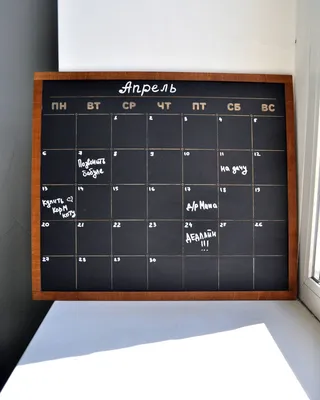 Апрель
ПН ВТ СР ЧТ ПТ СБ ВС
1 2 3 4 5
6 7 8 9 10 11 12
Позвонить
бабуле
На дачу
13 14 15 16 17 18 19
Купить
корм
коту
д/р Мама
20 21 22 23 24 25 26
ДЕДЛАЙН
!!!
27 28 29 30